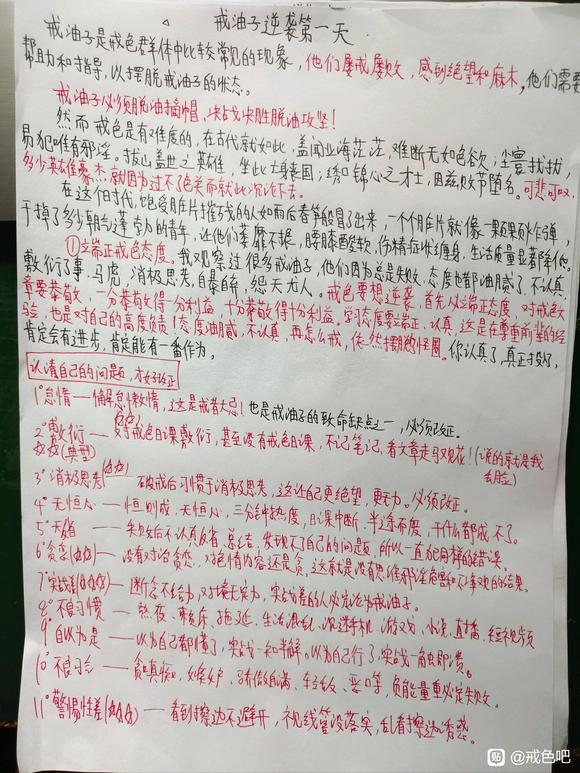 戒油子逆袭第一天
戒油子是戒色群体中比较常见的现象，他们屡戒屡败，感到绝望和麻木，他们需要
帮助和指导，以摆脱戒油子的状态。
戒油子必须脱油摘帽，决战决胜脱油攻坚！
然而戒色是有难度的，在古代就如此，盖闻业海茫茫，难断无如色欲；尘寰扰扰，
易犯唯有邪淫。拔山盖世之英雄，坐此亡身丧国；绣口锦心之才士，因兹败节堕名。可悲可叹，
多少英雄豪杰就因为过不了色关而就此沉沦下去。
在这个时代，饱受片摧残的人如雨后春笋般冒了出来，一个个片就像一颗颗炸弹，
干掉了多少朝气蓬勃的青年，让他们萎靡不振，腰膝酸软，伤精症状缠身，生活质量显著降低。
①端正戒色态度。我观察过很多戒油子，他们因为总是失败，态度也都油腻了，不认真，
敷衍了事，马虎，消极思考，自暴自弃，怨天尤人。戒色要想逆袭，首先必端正态度，对戒色文
章要恭敬，一分恭敬得一分利益，十分恭敬得十分利益。学习态度要端正，认真，这是在尊重前辈的经
验，也是对自己的高度负责！态度油腻，不认真，再怎么戒，依然摆脱怪圈。你认真了，真正投入了，
肯定会有进步，肯定能有一番作为。
认清自己的问题，才好改正
1°怠惰——懈怠懒惰，这是戒者大忌！也是戒油子的致命缺点之一，必须改正。
2°敷衍——对戒色日课敷衍，甚至没有戒色日课，不记笔记，看文章走马观花！(说的就是我
(典型)
自己)
3°消极思考——破戒后习惯于消极思考，这让自己更绝望，更无力。必须改正。
4°无恒心——恒则成，无恒心，三分钟热度，日课中断，半途而废，干什么都成不了。
5°不反省——失败后不认真反省，总结，发现不了自己的问题，所以一直犯同样的错误。
6°贪恋——没有对治贪恋，对色情内容还是贪，这就是没有思维邪淫危害和不净观的结果。
7°实战差——断念不给力，对境无定力，实战差的人必定沦为戒油子。
8°不良习惯——熬夜、赖床、拖延、生活混乱、沉迷手机、游戏、小说、直播、短视频
9°自以为是——以为自己都懂了，实战一知半解。以为自己行了，实战一触即溃。
10°不良习气——贪嗔痴，嫉妒，骄傲自满，轻慢，恶口等，负能量重必定失败。
11°警惕性差——看到擦边不避开，视线管没落实，乱看擦边诱惑。
贴 @戒色吧